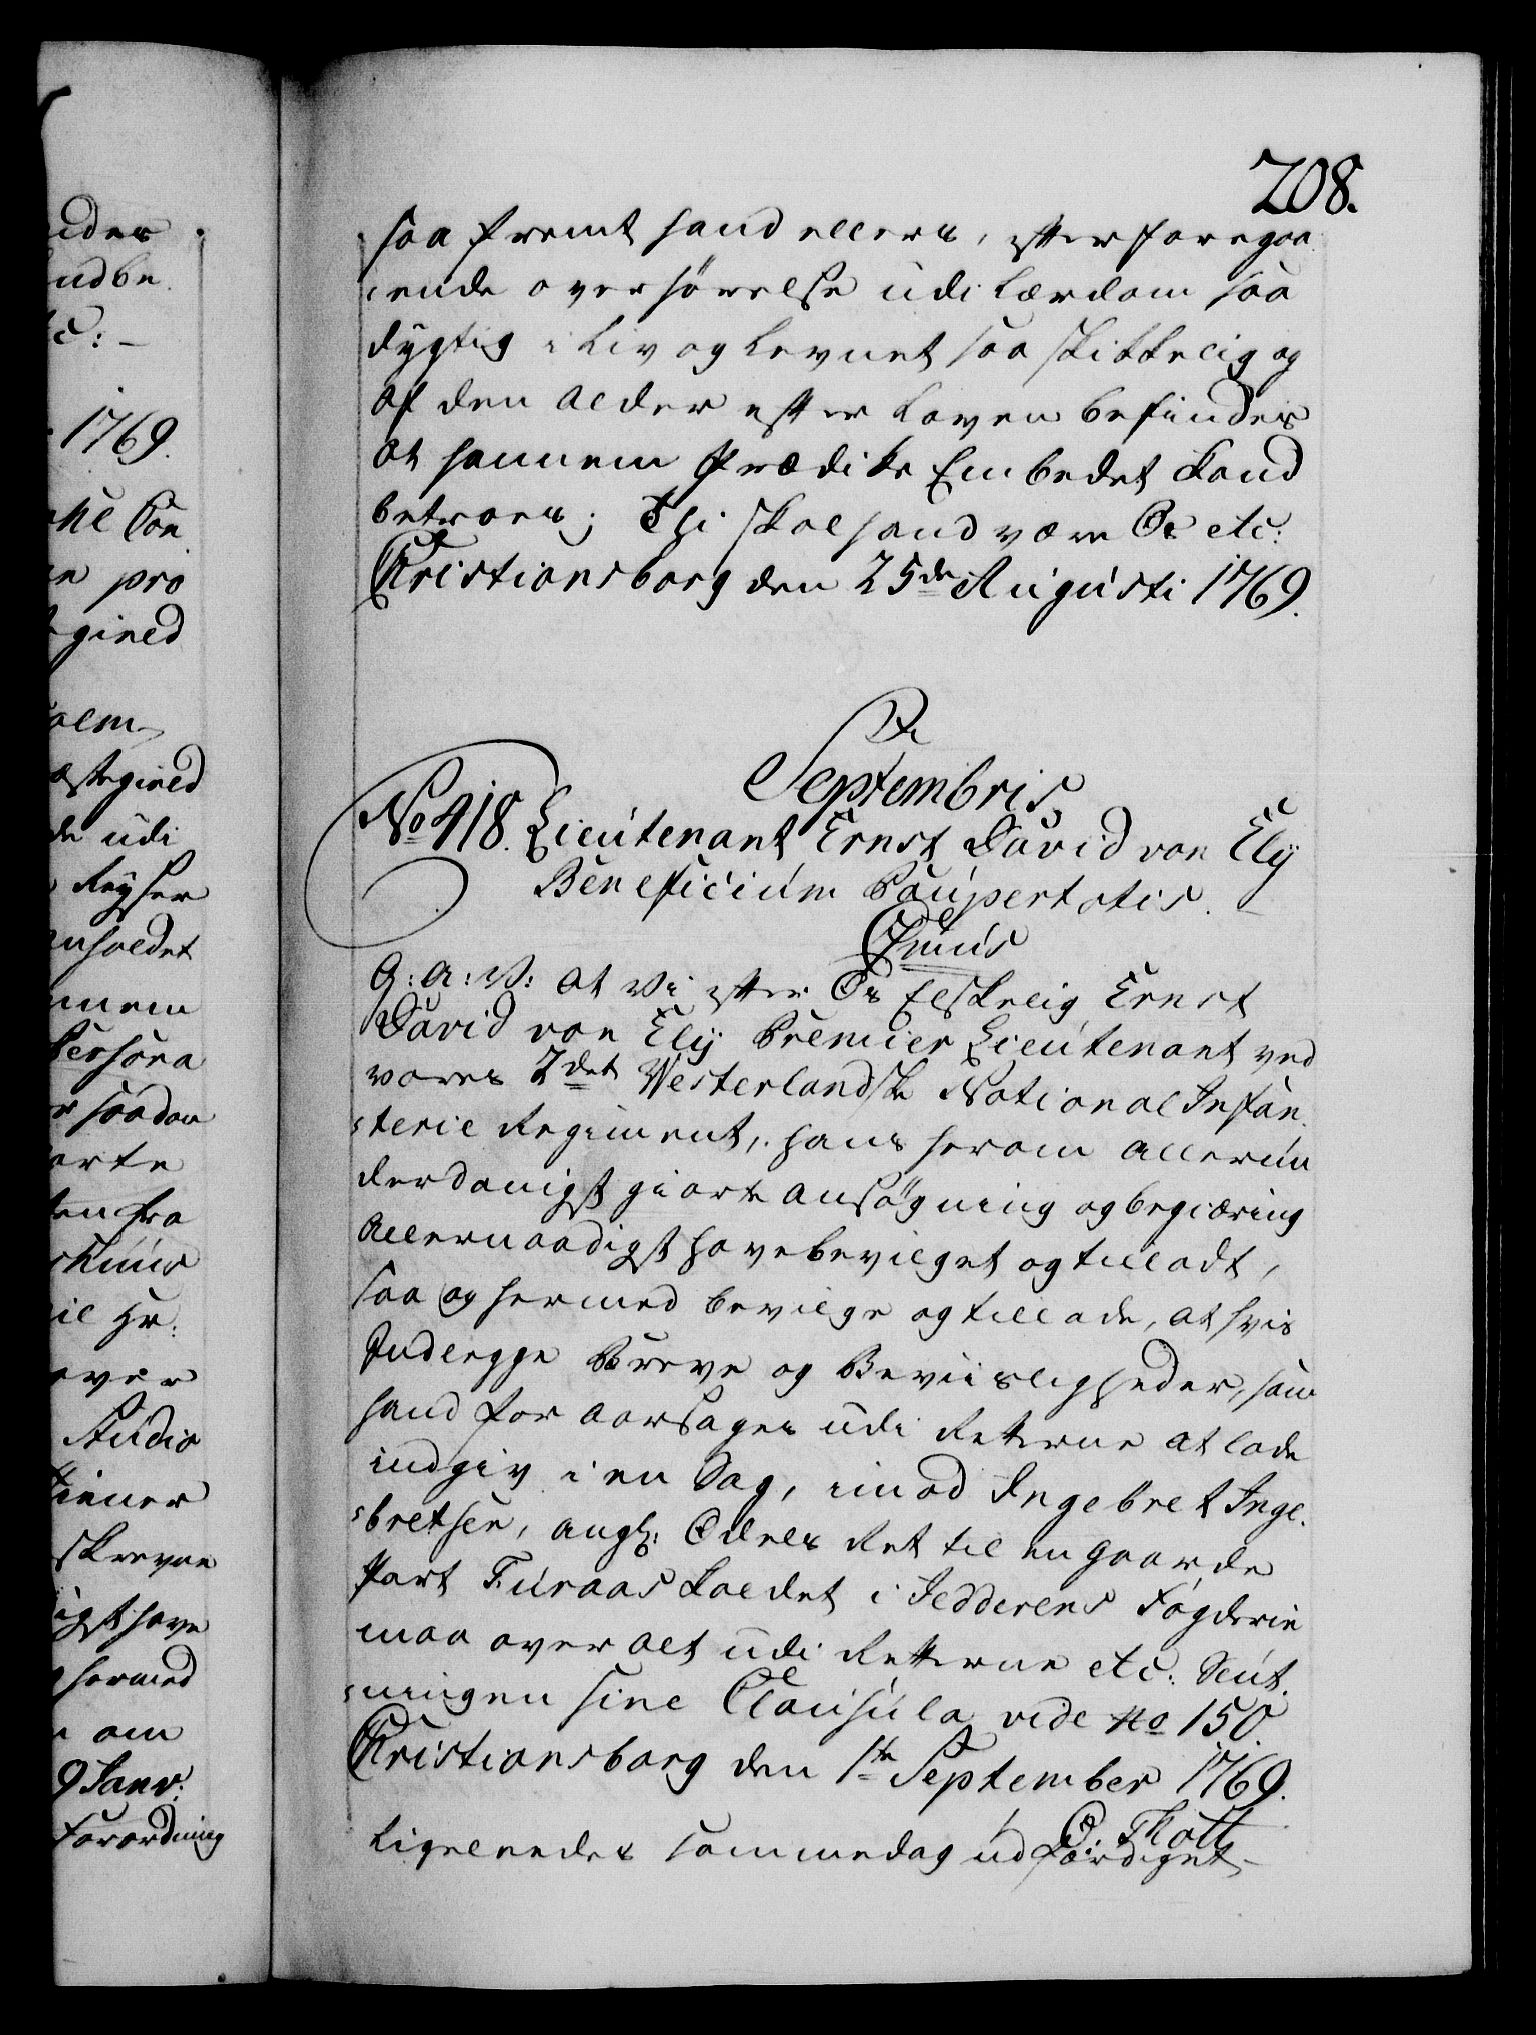 208.
saa fremt hand ellers, efter foregaa
ende overhørelse udi Lærdom saa
dygtig i Liv og Levnet saa skikkelig og
af den Alder efter Loven befindes
at hannem Prædike Embedet kand
betroes; Thi skal hand være Os etc:
Christiansborg den 25de Augusti 1769.
Septembris
No 418. Lieutenant Ernst David von Elÿ
Beneficium Paupertatis.
Chmus
G: A: V: at Vi efter Os Elskelig Ernst
David von Elÿ Premier Lieutenant ved
vores 2det Vesterlandske National Infan
terie Regiment, hans herom allerun
derdanigst giorte Ansøgning og begiæring
allernaadigst have bevilget og tilladt,
saa og hermed bevilge og tillade, at hvis
Indlegge Breve og Beviisligheder, som
hand for aarsages udi Retterne at lade
indgiv i en Sag, imod Engebret Inge
bretsen, angl: Odels Ret til en Gaarde
Part Turaas kaldet i Jedderens Fogderie
maa over alt udi Retterne etc. Slut
ningen sine Clausula vide No 150.
Christiansborg den 1te September 1769.
O. Thott
Ligeleedes sammedag udfærdiget